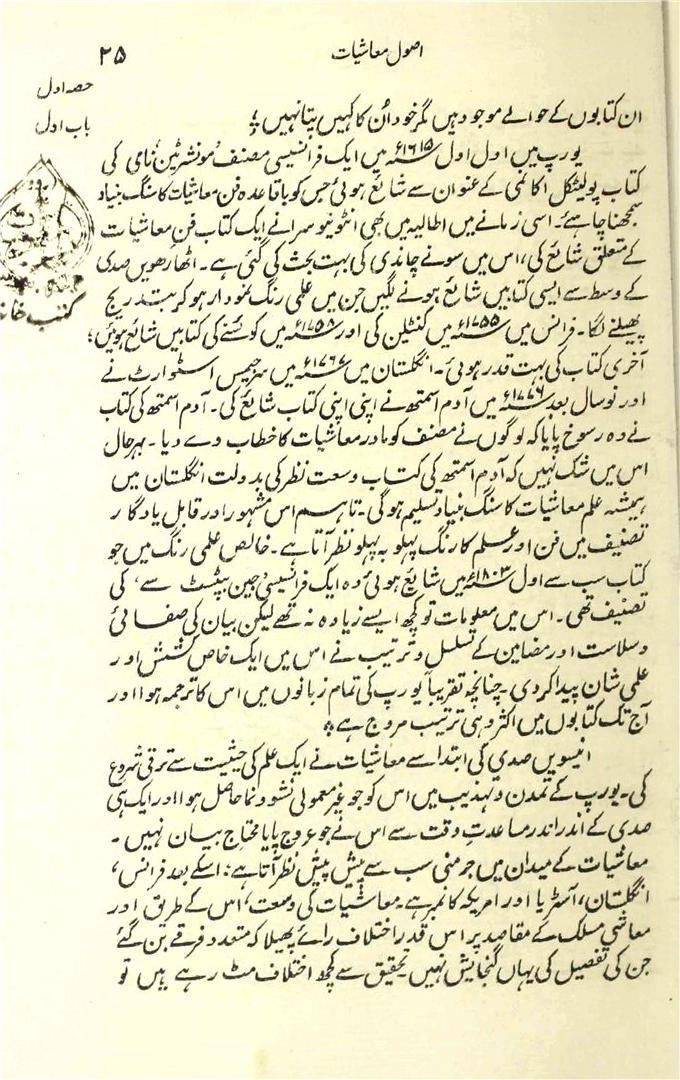 اصول معاشیات
۲۵
حصہ اول
باب اول
ان کتابوں کے حوالے موجود ہیں مگر خود اُن کا کہیں پتا نہیں ؛
یورپ میں اول اول ۱۶۱۵ء میں ایک فرانسیسی مصنف مونشرٹین نامی کی
کتاب پولیٹکل اکانمی کے عنوان سے شایع ہوئی جس کو باقاعدہ فن معاشیات کا سنگ بنیاد
سمجھنا چاہیے۔ اسی زمانے میں اطالیہ میں بھی انٹونیو سرا نے ایک کتاب فن معاشیات
کے متعلق شایع کی، اس میں سونے چاندی کی بہت بحث کی گئی ہے۔ اٹھارھویں صدی
کے وسط سے ایسی کتابیں شایع ہونے لگیں جن میں علمی رنگ نمودار ہو کر بتدریج
پھیلنے لگا۔ فرانس میں ۱۷۵۵ء میں کنٹلن کی اور ۱۷۵۸ء میں کوئسنے کی کتابیں شایع ہوئیں؛
آخری کتاب کی بہت قدر ہوئی۔ انگلستان میں ۱۷۶۷ء میں سر جیمس اسٹوارٹ نے
اور نو سال بعد ۱۷۷۶ء میں آدم اسمتھ نے اپنی اپنی کتاب شایع کی۔ آدم اسمتھ کی کتاب
نے وہ رسوخ پایا کہ لوگوں نے مصنف کو مادر معاشیات کا خطاب دے دیا۔ بہر حال
اس میں شک نہیں کہ آدم اسمتھ کی کتاب وسعت نظر کی بدولت انگلستان میں
ہمیشہ علم معاشیات کا سنگ بنیاد تسلیم ہوگی۔ تاہم اس مشہور اور قابل یادگار
تصنیف میں فن اور علم کا رنگ پہلو بہ پہلو نظر آتا ہے۔ خالص علمی رنگ میں جو
کتاب سب سے اول ۱۸۰۳ء میں شایع ہوئی وہ ایک فرانسیسی جین بپٹسٹ سے، کی
تصنیف تھی۔ اس میں معلومات تو کچھ ایسے زیادہ نہ تھے لیکن بیان کی صفائی
و سلاست اور مضامین کے تسلسل و ترتیب نے اس میں ایک خاص کشش اور
علمی شان پیدا کردی۔ چنانچہ تقریباً یورپ کی تمام زبانوں میں اس کا ترجمہ ہوا اور
آج تک کتابوں میں اکثر وہی ترتیب مروج ہے؛
انیسویں صدی کی ابتدا سے معاشیات نے ایک علم کی حیثیت سے ترقی شروع
کی۔ یورپ کے تمدن و تہذیب میں اس کو جو غیر معمولی نشو و نما حاصل ہوا اور ایک ہی
صدی کے اندر اندر مساعدتِ وقت سے اس نے جو عروج پایا محتاج بیان نہیں۔
معاشیات کے میدان میں جرمنی سب سے پیش پیش نظر آتا ہے؛ اسکے بعد فرانس،
انگلستان، آسٹریا اور امریکہ کا نمبر ہے۔ معاشیات کی وسعت، اس کے طریق اور
معاشی مسلک کے مقاصد پر اس قدر اختلاف رائے پھیلا کہ متعدد فرقے بن گئے
جن کی تفصیل کی یہاں گنجایش نہیں۔ تحقیق سے کچھ اختلاف مٹ رہے ہیں تو